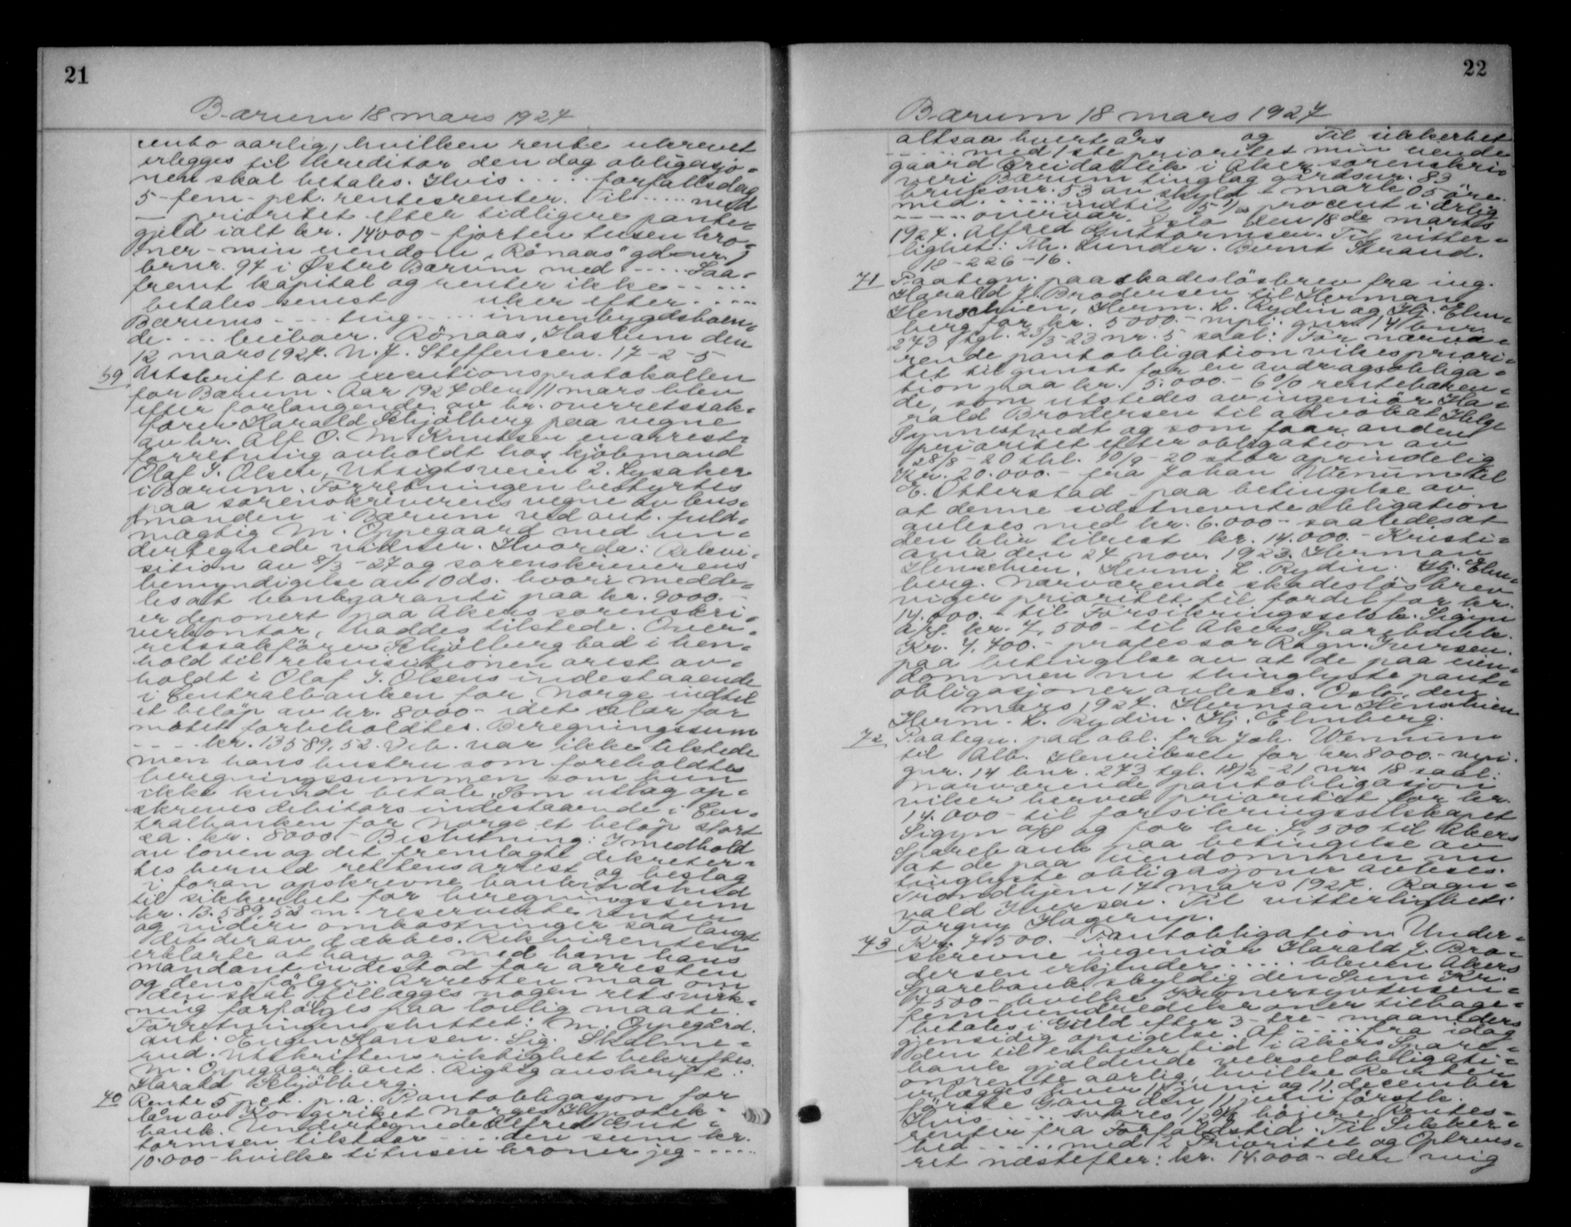 21
Bærum 18 mars 1927
rente aarlig, hvilken rente ukrevet
erlegges til kreditor den dag obligasjo-
nen skal betales. Hvis ..... forfallsdag
5 - fem - pct. rentesrenter. Til ..... med
— prioritet efter tidligere pante-
gjeld ialt kr. 14000 - fjorten tusen kro-
ner - min eiendom „Rönaas" gdsnr. 1
brnr. 97 i Østre Bærum med ..... Saa-
fremt kapital og renter ikke .....
betales senest uker efter .....
Bærums ..... ting ..... innenbygdsboen-
de ..... beboer. Rönaas, Haslum den
12 mars 1927. N. J. Steffensen. 17-2-5
69 Utskrift av executionsprotokollen
for Bærum. Aar 1927 den 11 mars blev
efter forlangende av hr. overretssak-
fører Harald Schjölberg paa vegne
av hr. Alf O. M. Knutsen en arrest-
forretning avholdt hos kjöbmand
Olaf J. Olsen, Utsigtsveien 2. Lysaker
i Bærum. Forretningen bestyrtes
paa sorenskriverens vegne av lens-
manden i Bærum ved aut. fuld-
mægtig M. Oppegaard med un-
dertegnede vidner. Hvorda: Rekvi-
sition av 8/3-27 og sorenskriverens
bemyndigelse av 10 ds. hvori medde-
les at bankgaranti paa kr. 9000.-
er deponert paa Akers sorenskri-
verkontor, haddes tilstede. Over-
retssakfører Schjölberg bad i hen-
hold til rekvisitionen arest av-
holdt i Olaf J. Olsens indestaaende
i Centralbanken for Norge indtil
et belöp av kr. 8000 - idet salær for
mötet forbeholdtes. Beregningssum
- - - - kr. 13589.52. Deb. var ikke tilstede
men hans hustru som foreholdtes
beregningssummen som hun
ikke kunde betale. Som utlag op-
skreves debitors indestaaende i Cen-
tralbanken for Norge et beløp stort
ca. kr. 8000.- Beslutning: I medhold
av loven og det fremlagte dekreter-
tes herved rettens arrest og beslag
i foran opskrevne bankindskud
til sikkerhet for beregningssum
kr. 13.589,52 m. reserverte renter
og videre omkostninger saa langt
det derav dækkes. Rekvirenten
erklærte at han og med ham hans
mandant indestod for arresten
og dens følger. Arresten maa om
den skal tillægges nogen retsvirk-
ning forfølges paa lovlig maate.
Forretningen sluttet: M. Oppegård.
aut. Eugen Hansen. Sig. Skolme-
rud. Utskriftens riktighet bekreftes.
M. Oppegaard aut. Rigtig avskrift:
Harald Schjölberg.
70 Rente 5 pct. p.a. Pantobligasjon for
lån av Kongeriket Norges Hypotek-
bank. Undertegnede Alfred Gut-
tormsen tilstaar ..... den sum kr.
10.000 - hvilke titusen kroner jeg .....
22
Bærum 18 mars 1927
altsaa hvert års og Til sikkerhet
..... med 1ste prioritet min eiende-
gaard Breidablik i Aker sorenskri-
veri Bærum tinglag gårdsnr. 83
bruksnr. 53 av skyld 1 mark 05 öre
med ..... indtil 5 1/2 procent i årlig
..... övervar. Oslo den 18 de marts
1927. Alfred Guttormsen. Til vitter-
lighet: Th. Lunder. Bernt Strand.
18-226-16.
71 Paategn. paa skadeslösbrev fra ing.
Harald J. Brodersen til Herman
Henschien, Herm. L. Rydin og Hj. Elm-
berg for kr. 5000 - mpl: gnr. 14 bnr.
273 tgl. 23/5-23 nr. 5 saal: For nærvæ-
rende pantobligation vikes priori-
tet til gunst for en avdragsobliga-
tion paa kr. 15.000.- 6% rentebæren-
de, som utstedes av ingeniör Ha-
rald Brodersen til advokat Helge
Synnestvedt og som faar anden
prioritet efter obligation av
28/8-20 thl. 10/9-20 stor oprindelig
Kr. 20.000.- fra Johan Wennum til
E. Otterstad - paa betingelse av
at denne sidstnevnte obligation
avleses med kr. 6.000 - saaledes at
den blir tilrest kr. 14.000.- Kristi-
ania den 24 nov. 1923. Herman
Henschien. Herm. L. Rydin. Hj. Elm-
berg. Nærværende skadeslös brev
viger prioritet til fordel for kr.
14.000.- til Forsikringsselsk. Sigyn
A/S. kr. 7.500 - til Akers Sparebank.
Kr. 7.400. professor Ragn. Iversen.
paa betingelse av at de paa eien-
dommen nu thinglyste pant-
obligasjoner avleses. Oslo, den
mars 1927. Herman Henschien
Herm. L. Rydin. Hj. Elmberg.
72 Paategn. paa obl. fra Joh. Wennum
til Alb. Henriksen for kr. 8000.- mpl.
gnr. 14 bnr. 273 tgl. 18/2-21 nr. 18 saal:
Nærværende pantobligasjon
viker herved prioritet for kr.
14.000 - til forsikringsselskapet
Sigyn A/S og for kr. 7.500 til Akers
Sparebank paa betingelse av
at de paa eiendommen nu
tinglyste obligasjoner avleses.
Trondhjem 14 mars 1927. Ragn-
vald Iversen. Til vitterlighet:
Torguny Hagerup.
73 Kr. 7500.- Pantobligation. Under-
skrevne ingeniör Harald J. Bro-
dersen erkjender ..... bleven Akers
Sparebank skyldig den Sum Kr.
7500 - hvilke Kroner syvtusen-
femhundrede kroner tilbage-
betales i Guld efter 3 - tre - maaneders
gjensidig opsigelse. Af ..... fra idag
den til enhver tid i Akers Spare-
bank gjældende vekselobligati-
onsrente aarlig, hvilke Renter
erlægges hver 11 juni og 11 december
förste Gang den 11 juni förstk.
Hvis ..... svares 1/2% höiere Rentes-
renter fra Forfaldstid. Til Sikker-
hed ..... med 2 Prioritet og Oprens-
ret næstefter: kr. 14.000 - den mig